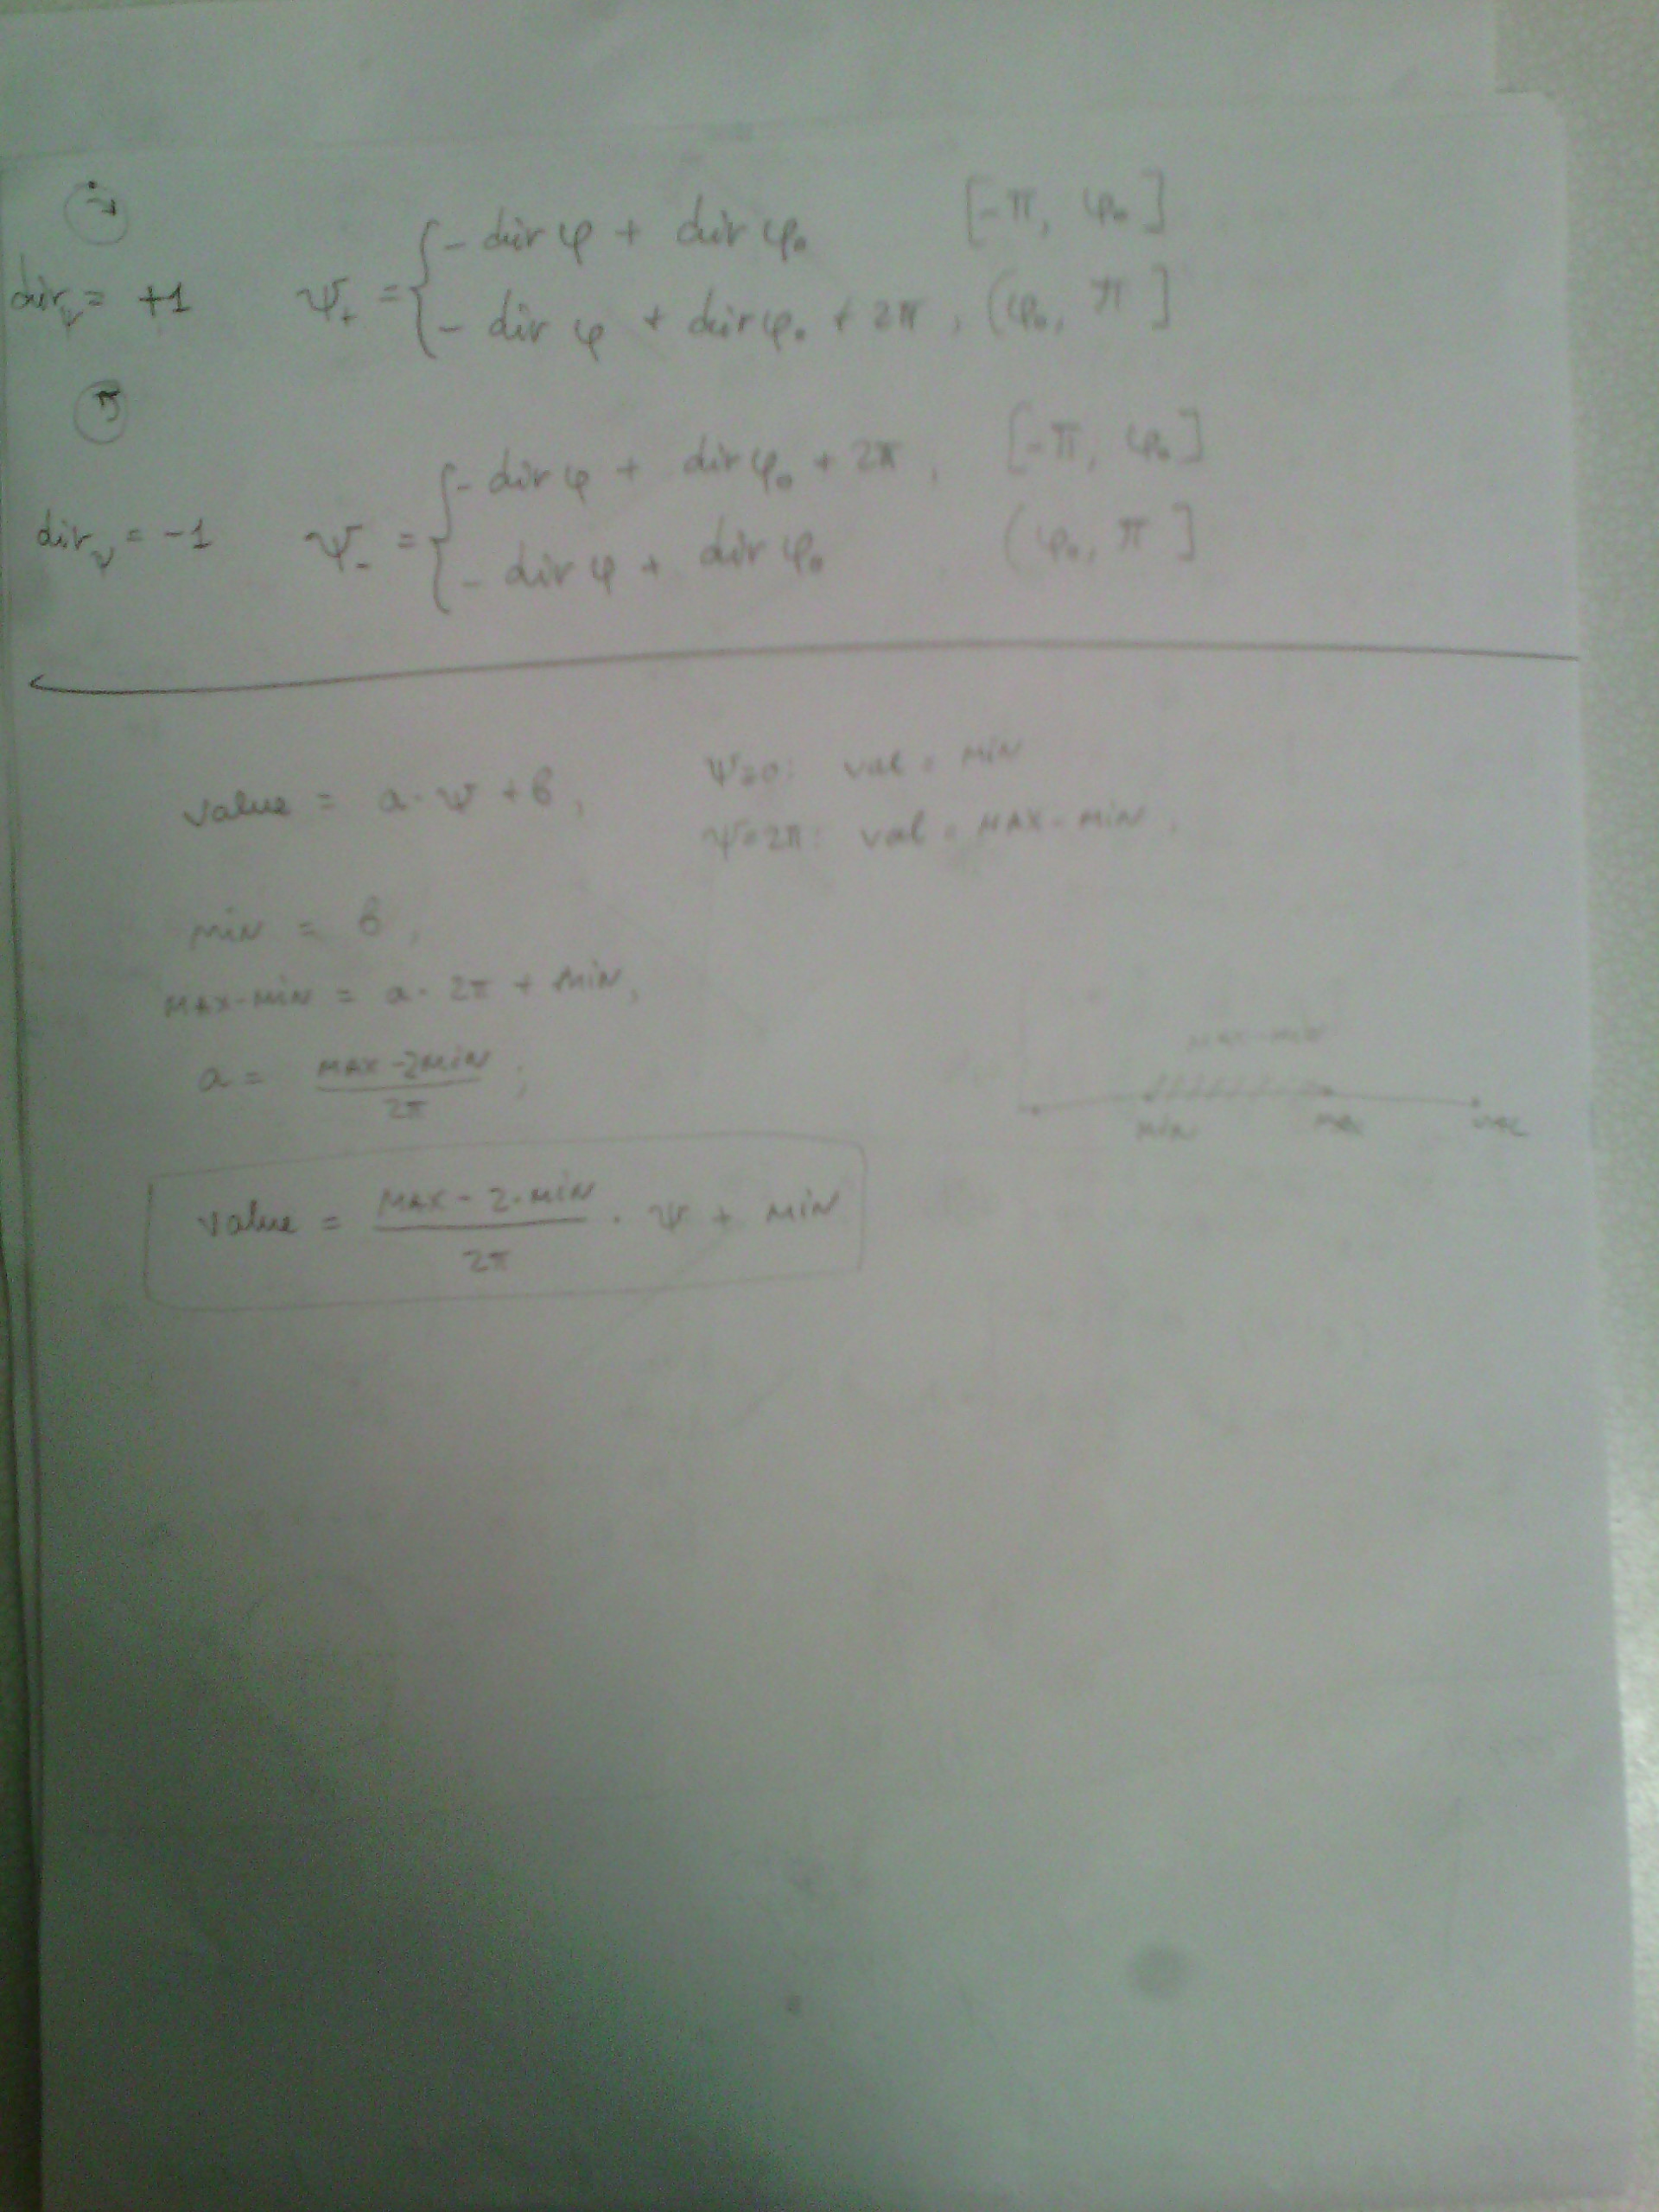 dirψ = +1 ψ₊ = { - dir φ + dir φ₀ [-π, φ₀]
- dir φ + dir φ₀ + 2π, (φ₀, π]
dirψ = -1 ψ₋ = { - dir φ + dir φ₀ + 2π, [-π, φ₀]
- dir φ + dir φ₀ (φ₀, π]
value = a·ψ + b, ψ=0: val = MIN
ψ=2π: val = MAX-MIN,
MIN = b,
MAX-MIN = a·2π + MIN,
a = MAX-2MIN / 2π ;
MAX-MIN
MIN MAX
value = MAX - 2·MIN / 2π · ψ + MIN